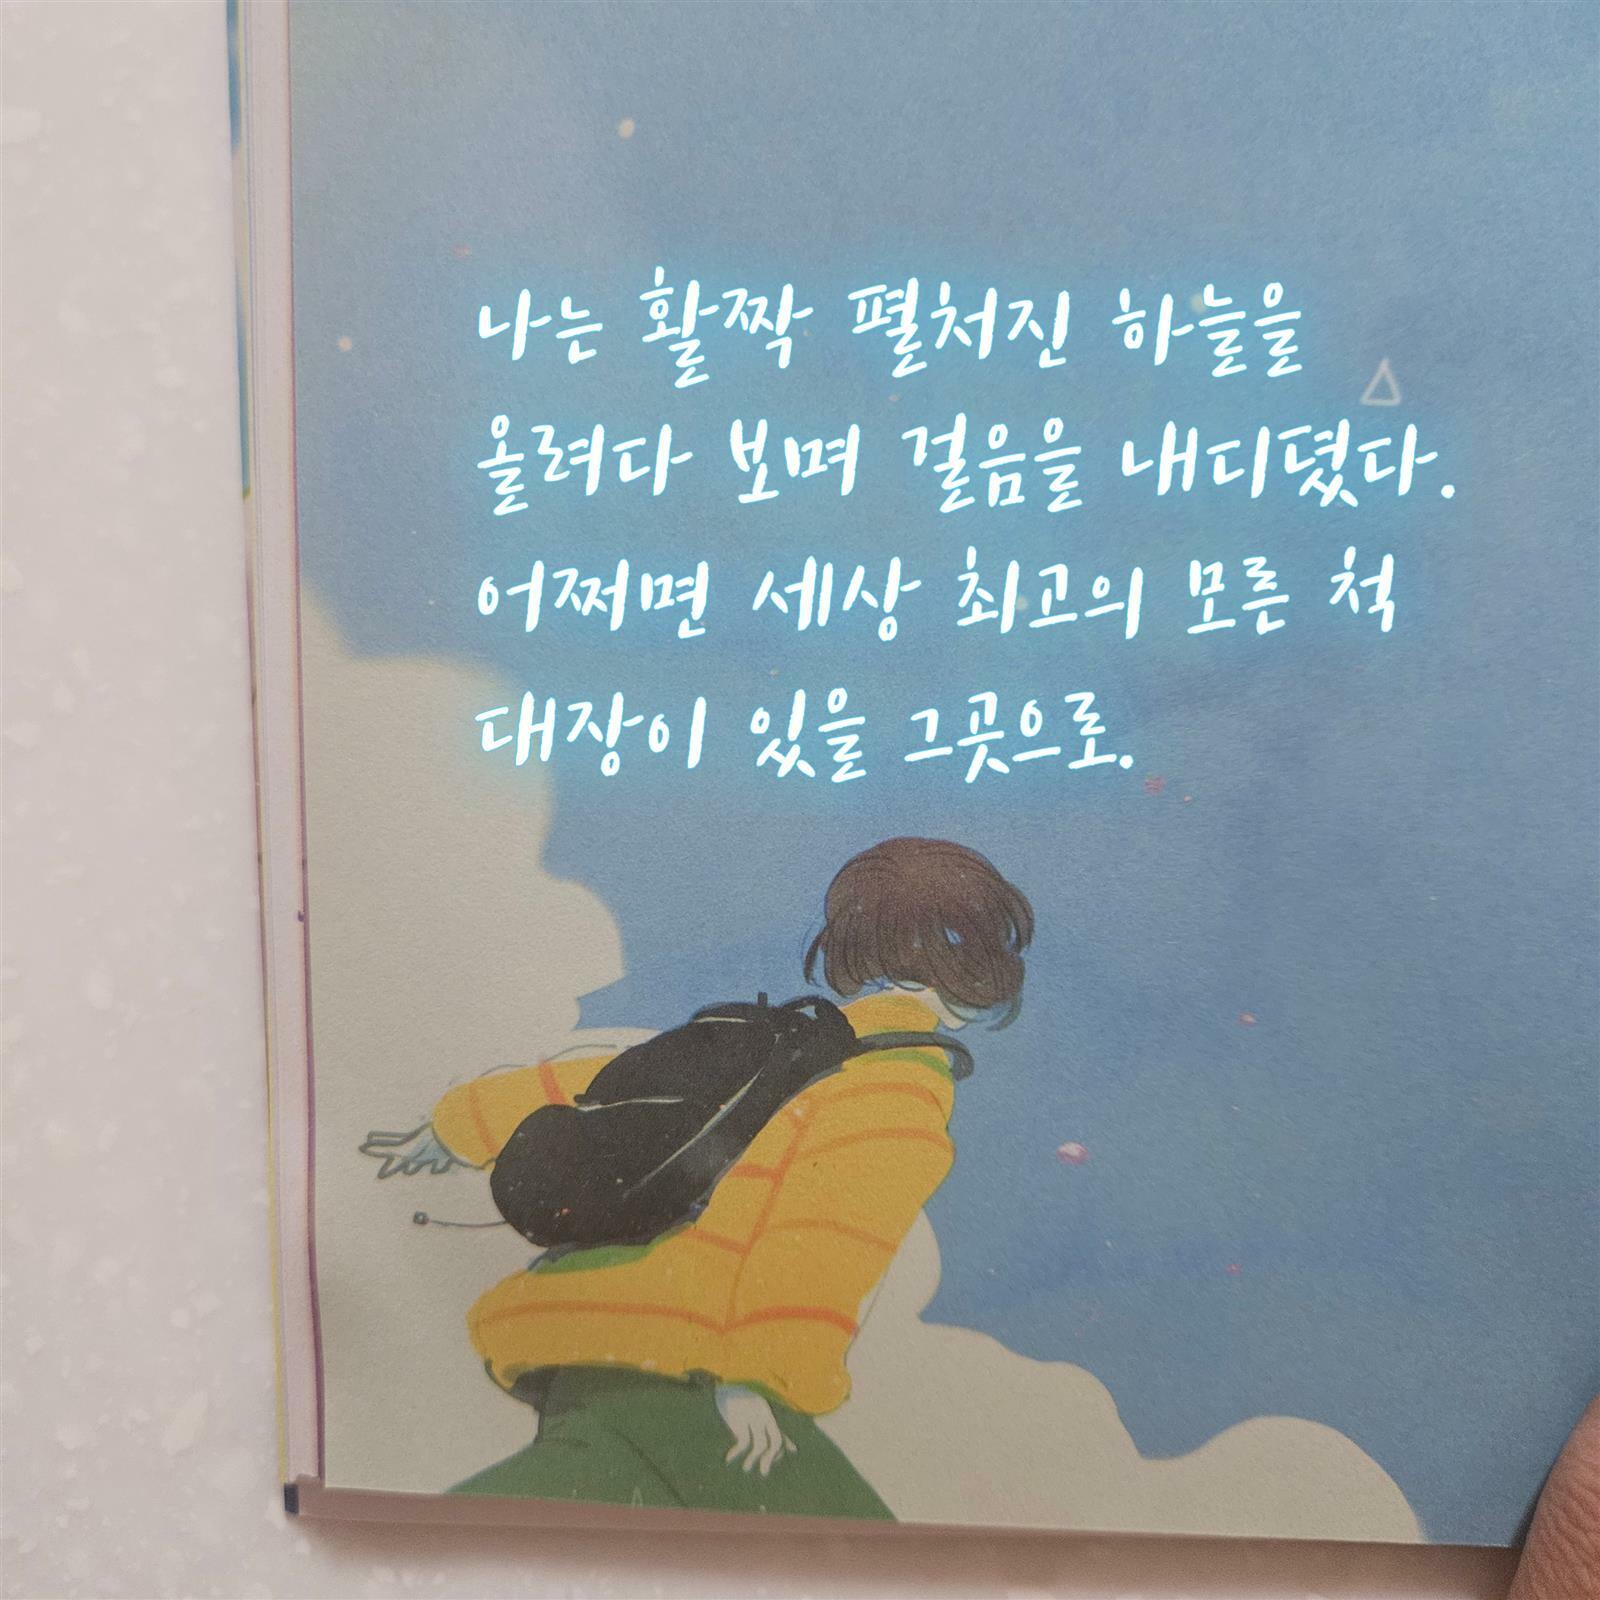 나는 활짝 펼처진 하늘을
올려다 보며 걸음을 내디뎠다.
어쩌면 세상 최고의 모른 척
대장이 있을 그곳으로.